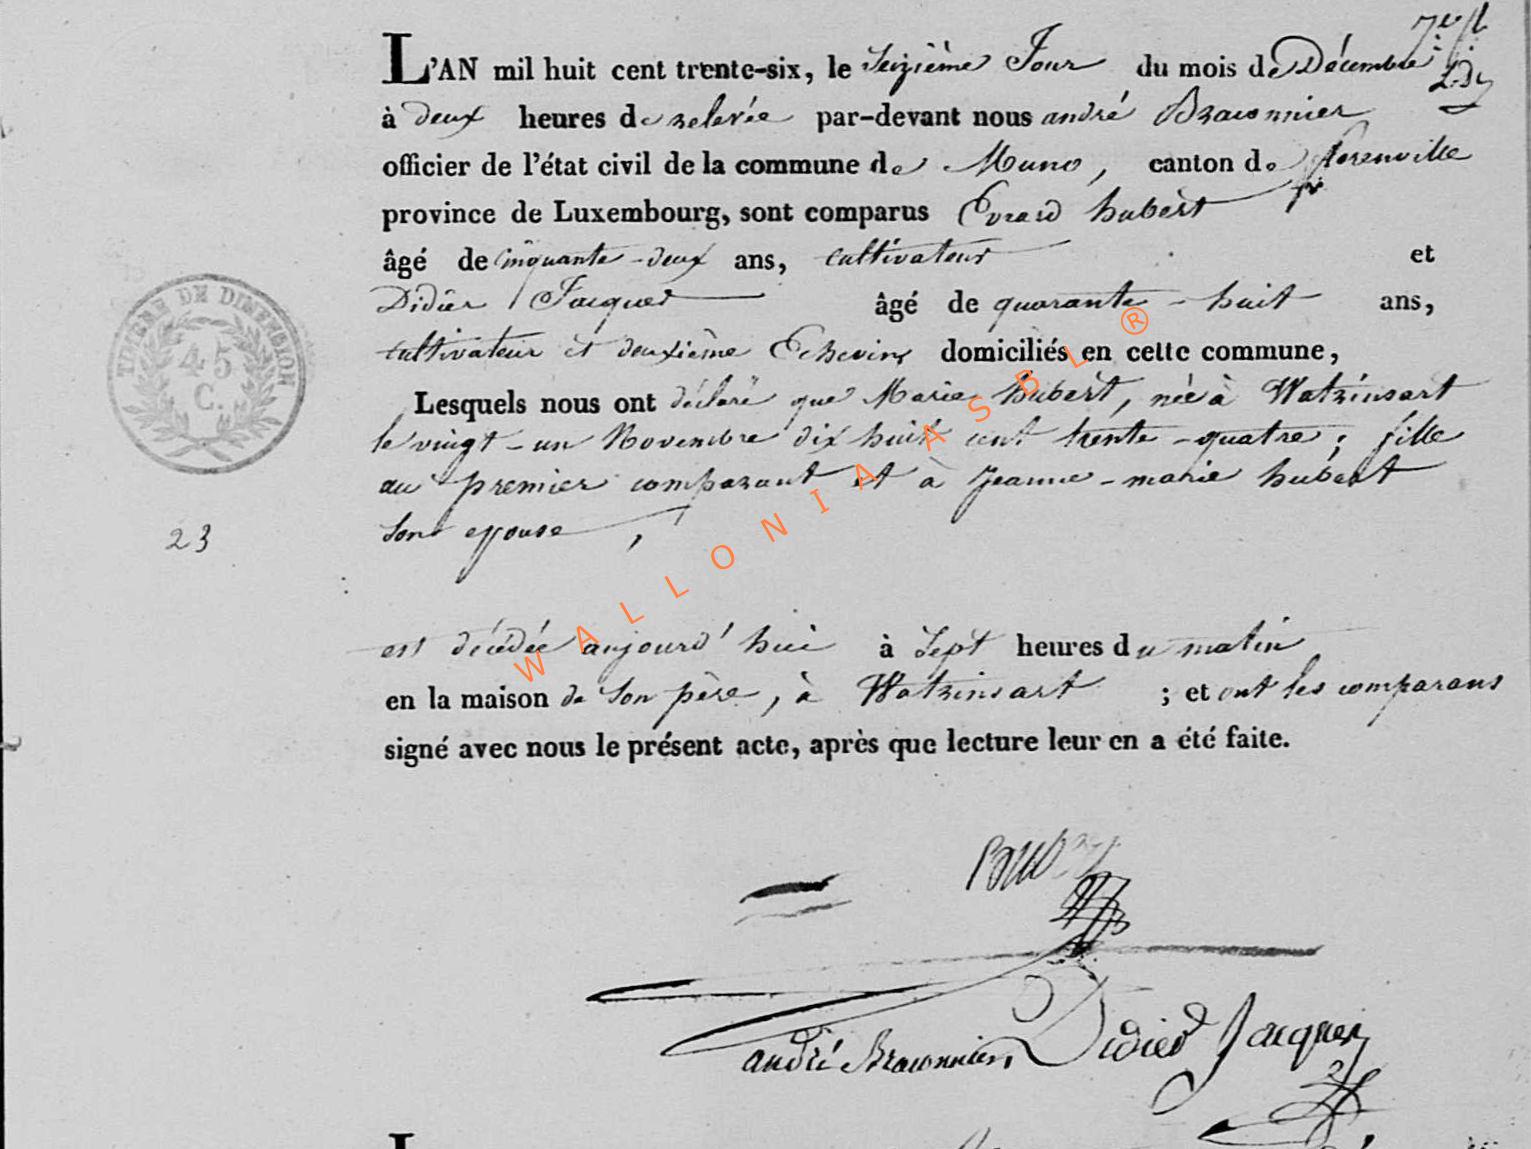 L'AN mil huit cent trente-six, le seizième Jour du mois de Décembre
à deux heures de relevée par-devant nous andré Braconnier
officier de l'état civil de la commune de Muno, canton de florenville
province de Luxembourg, sont comparus Evrard hubert
âgé de cinquante-deux ans, cultivateur et
Didier Jacques âgé de quarante-huit ans,
cultivateur et deuxième Echevin, domiciliés en cette commune,
Lesquels nous ont déclaré que Marie hubert, née à Watrinsart
le vingt-un Novembre dix huit cent trente-quatre; fille
au premier comparant et à Jeanne-marie hubert
son epouse,
est décédée aujourd'hui à sept heures du matin
en la maison de son père, à Watrinsart ; et ont les comparans
signé avec nous le présent acte, après que lecture leur en a été faite.
TIMBRE DE DIMENSION
45
C.
23
WALLONIA ASBL ®
andré Braconnier, Didier Jacques